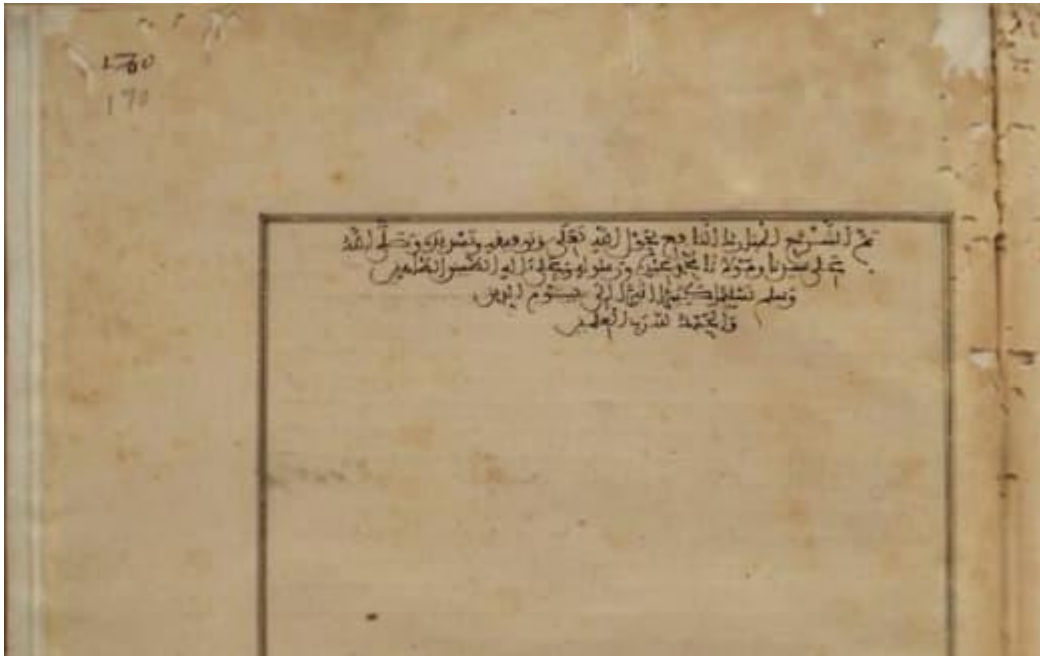 170
170
تم الشرح المبارك النافع بحول الله تعلى وتوفيقه وتسديده وصلى الله
على سيدنا ومولانا محمد عبده ورسوله وعلى ءاله الطيبين الطاهرين
وسلم تسليما كثيرا إلى يوم الدين
والحمد لله رب العلمين